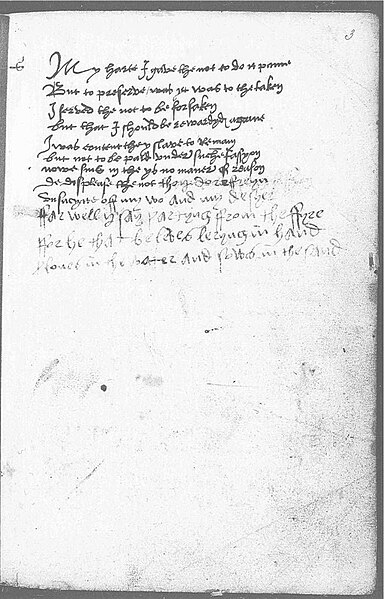 3
My harte I gave the not to do it paine
But to preserve was yt was to the taken
I served the not to be forsaken
but that I should be rewardyd agayne
I was content thy slave to Remain
but not to be paid under suche fassyon
nowe sins in the ys no maner of reason
displease the not
off my wo and my desyer
ffarwell I say partyng from the ffyre
ffor he that beleves beryng in hand
plowes in the water and sows in the sand